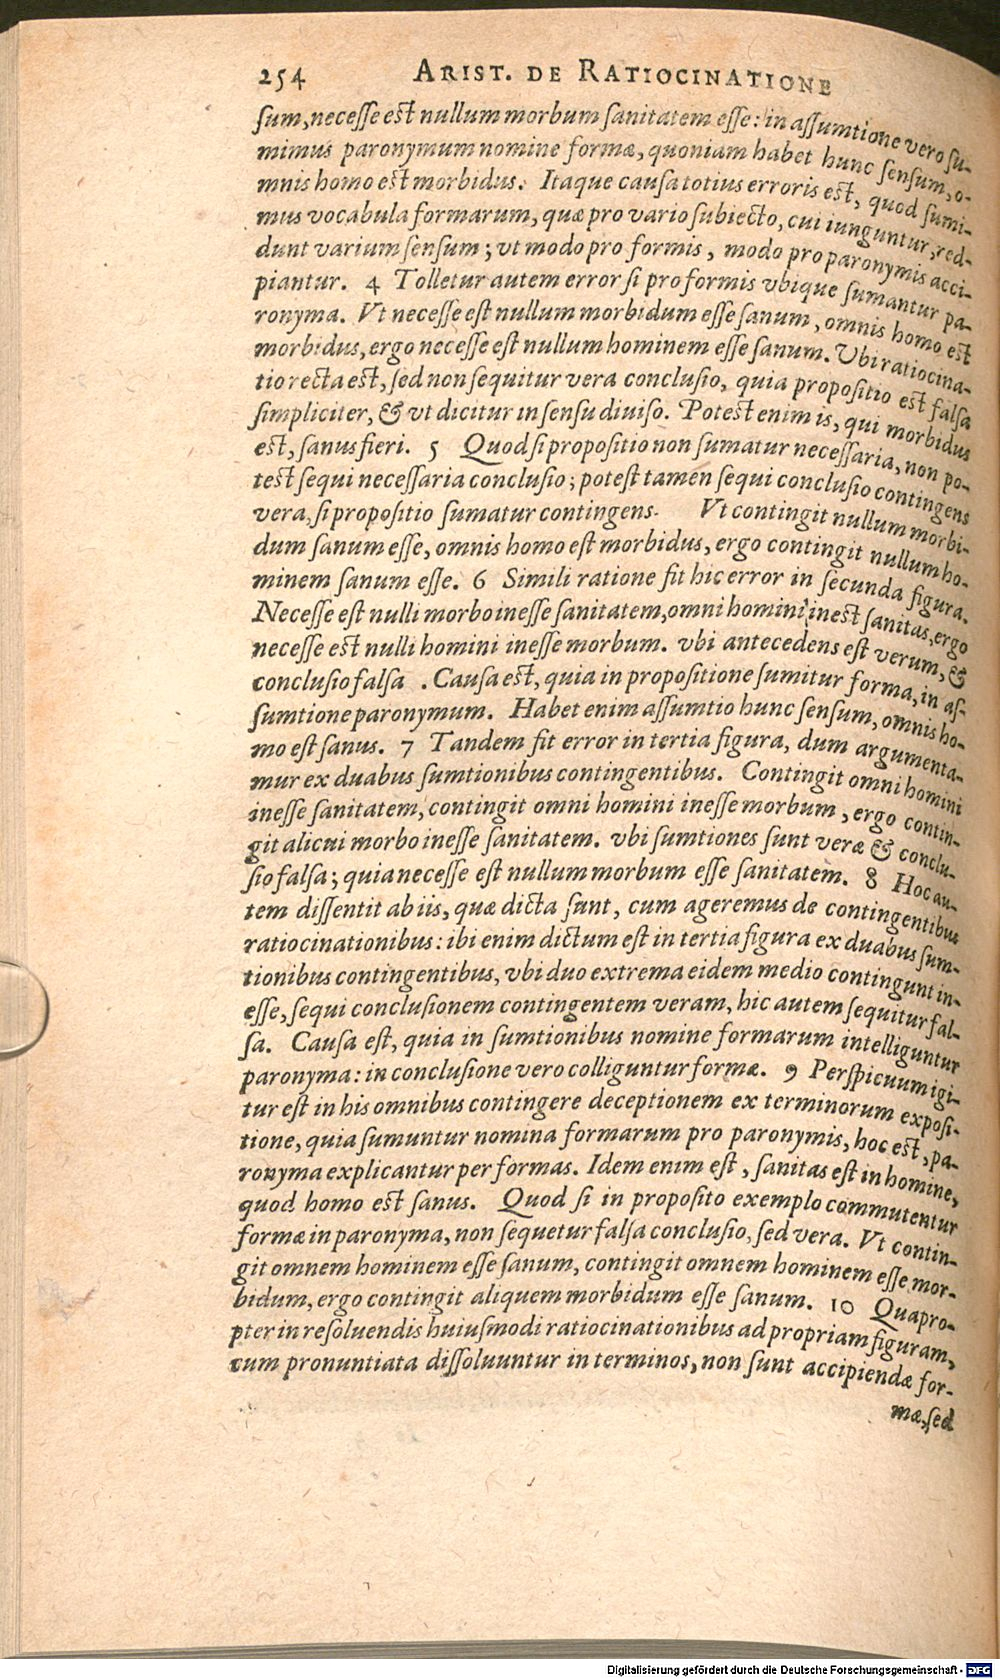 254 ARIST. DE RATIOCINATIONE
sum, necesse est nullum morbum sanitatem esse: in assumtione vero su-
mimus paronymum nomine formæ, quoniam habet hunc sensum, o-
mnis homo est morbidus. Itaque causa totius erroris est, quod sumi-
mus vocabula formarum, quæ pro vario subiecto, cui iunguntur, red-
dunt varium sensum; vt modo pro formis, modo pro paronymis acci-
piantur. 4 Tolletur autem error si pro formis vbique sumantur pa-
ronyma. Vt necesse est nullum morbidum esse sanum, omnis homo est
morbidus, ergo necesse est nullum hominem esse sanum. Vbi ratiocina-
tio recta est, sed non sequitur vera conclusio, quia propositio est falsa
simpliciter, & vt dicitur in sensu diuiso. Potest enim is, qui morbidus
est, sanus fieri. 5 Quod si propositio non sumatur necessaria, non po-
test sequi necessaria conclusio; potest tamen sequi conclusio contingens
vera, si propositio sumatur contingens. Vt contingit nullum morbi-
dum sanum esse, omnis homo est morbidus, ergo contingit nullum ho-
minem sanum esse. 6 Simili ratione fit hic error in secunda figura.
Necesse est nulli morbo inesse sanitatem, omni homini inest sanitas, ergo
necesse est nulli homini inesse morbum. vbi antecedens est verum, &
conclusio falsa . Causa est, quia in propositione sumitur forma, in as-
sumtione paronymum. Habet enim assumtio hunc sensum, omnis ho-
mo est sanus. 7 Tandem fit error in tertia figura, dum argumenta-
mur ex duabus sumtionibus contingentibus. Contingit omni homini
inesse sanitatem, contingit omni homini inesse morbum, ergo contin-
git alicui morbo inesse sanitatem. vbi sumtiones sunt veræ & conclu-
sio falsa; quia necesse est nullum morbum esse sanitatem. 8 Hoc au-
tem dissentit ab iis, quæ dicta sunt, cum ageremus de contingentibus
ratiocinationibus: ibi enim dictum est in tertia figura ex duabus sum-
tionibus contingentibus, vbi duo extrema eidem medio contingunt in-
esse, sequi conclusionem contingentem veram, hic autem sequitur fal-
sa. Causa est, quia in sumtionibus nomine formarum intelliguntur
paronyma: in conclusione vero colliguntur formæ. 9 Perspicuum igi-
tur est in his omnibus contingere deceptionem ex terminorum exposi-
tione, quia sumuntur nomina formarum pro paronymis, hoc est, pa-
ronyma explicantur per formas. Idem enim est, sanitas est in homine,
quod homo est sanus. Quod si in proposito exemplo commutentur
formæ in paronyma, non sequetur falsa conclusio, sed vera. Vt contin-
git omnem hominem esse sanum, contingit omnem hominem esse mor-
bidum, ergo contingit aliquem morbidum esse sanum. 10 Quapro-
pter in resoluendis huiusmodi ratiocinationibus ad propriam figuram,
cum pronuntiata dissoluuntur in terminos, non sunt accipiendæ for-
mæ, sed
Digitalisierung gefördert durch die Deutsche Forschungsgemeinschaft - DFG